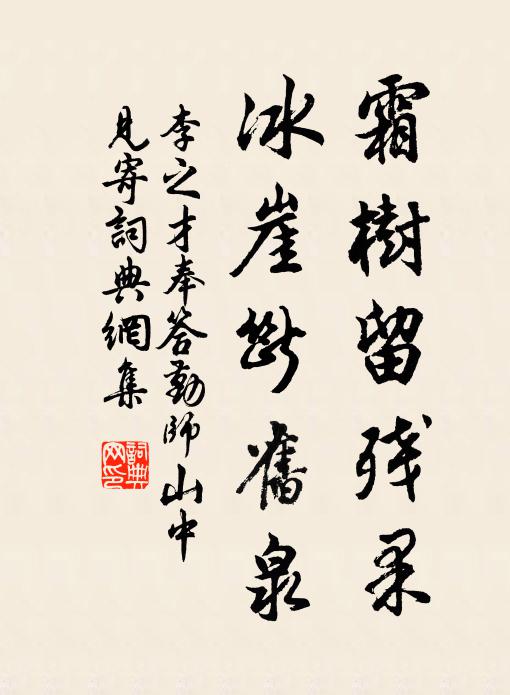 霜樹留殘果
冰崖斷舊泉
李之才奉答勤師山中
見寄詞典網集
詞典
网印